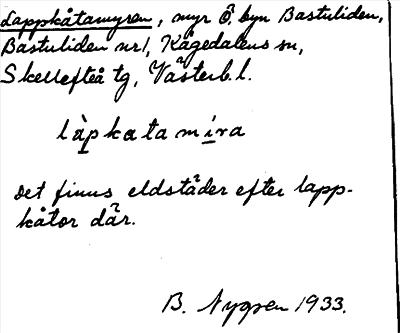 Lappkåtamyren, myr Ö. byn Bastuliden,
Bastuliden nr 1, Kågedalens sn,
Skellefteå tg, Västerb. l.
làpkatamíra
Det finns eldstäder efter lapp-
kåtor där.
B. Nygren 1933.